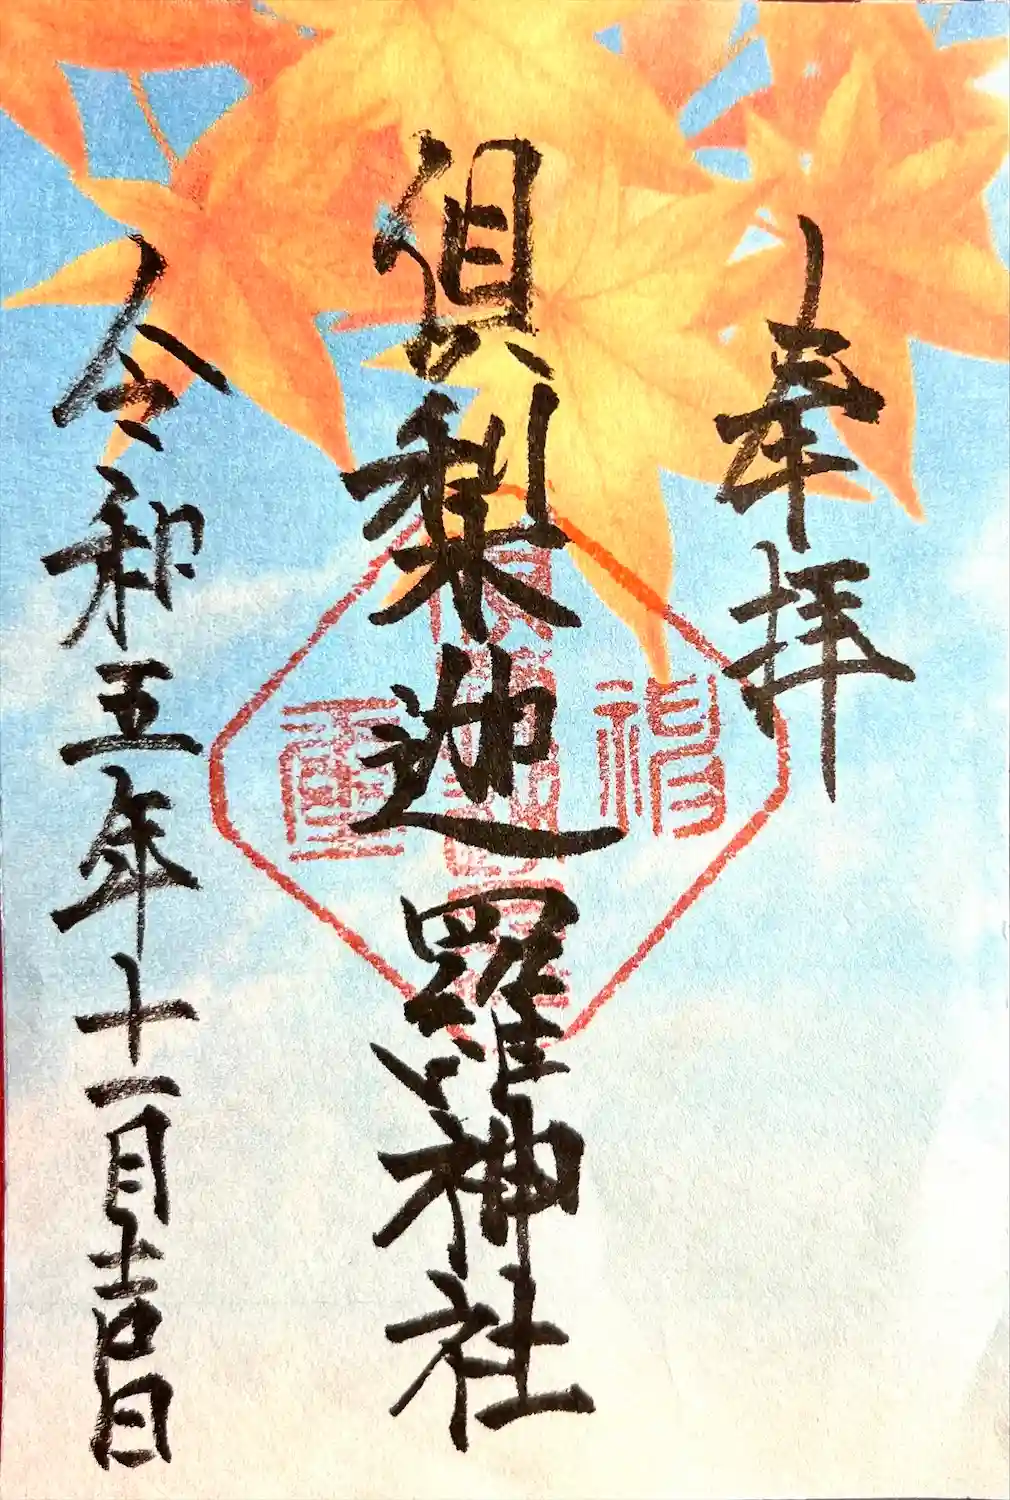 奉拝
倶梨迦羅神社
令和五年十一月吉日